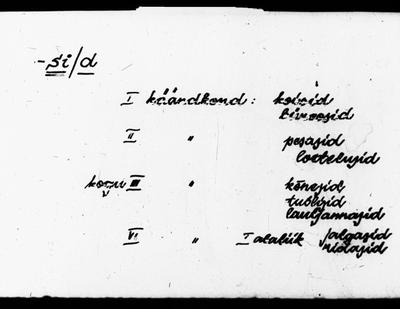 -si/d
I käändkond: koboid
büroosid
II " pesasid
loetelusid
III " kõnesid
tublisid
lauljannasid
VI " I alaliik jalgasid
ridasid